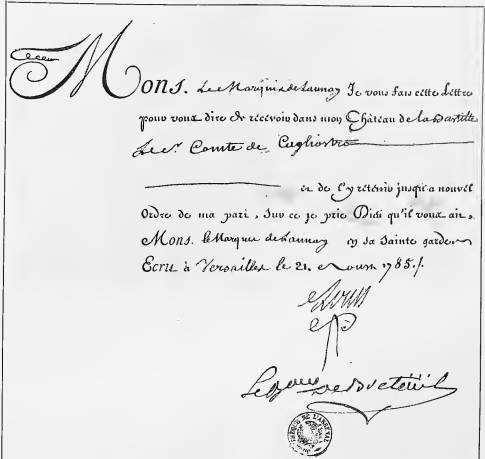 Mons. le Marquis de Launay Je vous fais cette Lettre
pour vous dire de recevoir dans mon Château de la Bastille
Le Sr. Comte de Cagliostro
et de l'y retenir jusqu'a nouvel
Ordre de ma part, sur ce je prie Dieu qu'il vous ait,
Mons. le Marquis de Launay en sa Sainte garde.
Ecrit à Versailles le 21. Aoust 1785./.
Louis
Le Bon De Breteüil